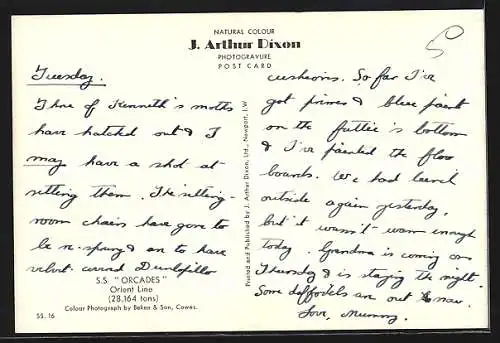 NATURAL COLOUR
J. Arthur Dixon
PHOTOGRAVURE
POST CARD
Tuesday.
Three of Kenneth's moths
have hatched out & I
may have a shot at
sitting them. The sitting-
room chairs have gone to
be re-sprung & are to have
velvet covered Dunlopillo
S.S. "ORCADES"
Orient Line
(28,164 tons)
Colour Photograph by Beken & Son, Cowes.
SS. 16
Printed and Published by J. Arthur Dixon, Ltd., Newport, I.W.
cushions. So far I've
got primer & blue paint
on the bottom
& I've painted the floor
boards. We had lunch
outside again yesterday,
but it wasn't warm enough
today. Grandma is coming on
Thursday & is staying the night.
Some daffodils are out now.
Love, Mummy.